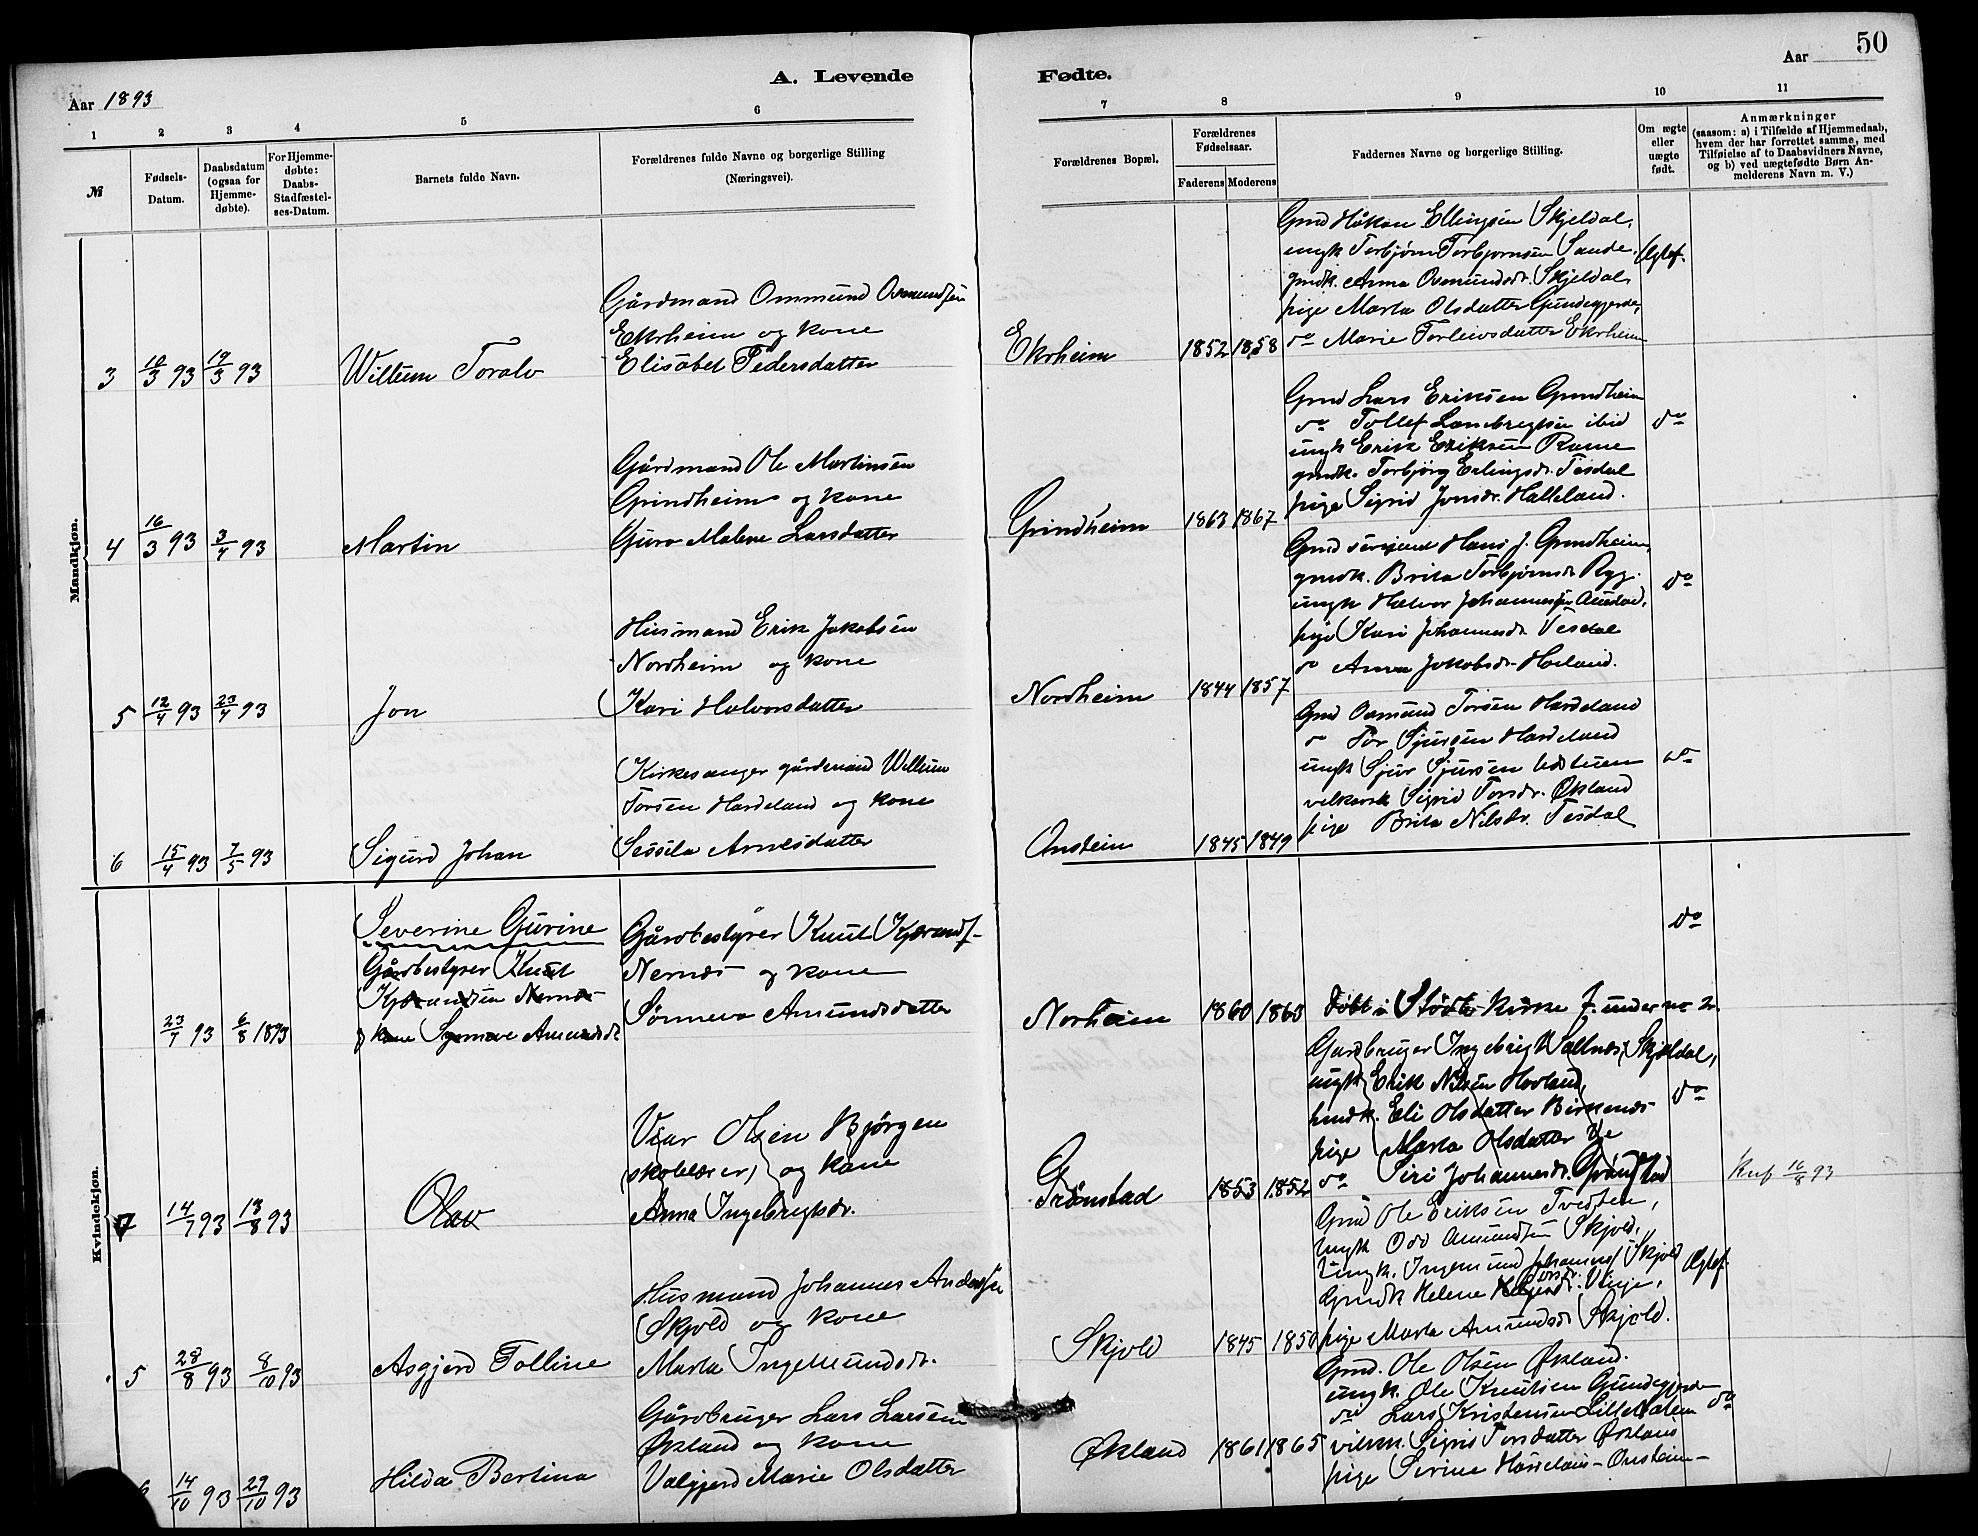 50
A. Levende
Fødte.
Aar 1893
Aar
1 2 3 4 5 6
7 8 9 10 11
№
Fødsels-
Datum.
Daabsdatum
(ogsaa for
Hjemme-
døbte).
For Hjemme-
døbte:
Daabs-
Stadfæstel-
ses-Datum.
Barnets fulde Navn.
Forældrenes fulde Navne og borgerlige Stilling
(Næringsvei).
Forældrenes Bopæl.
Forældrenes
Fødselsaar.
Faderens Moderens
Faddernes Navne og borgerlige Stilling
Om ægte
eller
uægte
født.
Anmærkninger
(saasom: a) i Tilfælde af Hjemmedaab,
hvem der har forrettet samme, med
Tilføielse af to Daabsvidners Navne,
og b) ved uægtefødte Børn An-
melderens Navn m. V.)
Mandkjøn.
3 18/3 93 19/3 93
Willum Toralv
Gårdmand Ommund Osmundsen
Ekrheim og kone
Elisabet Pedersdatter
Ekrheim 1852 1858
Gmd Håkon Ellingsen Skjeldal,
ungk Torbjørn Torbjørnsen Sande
gmdk. Anna Osmundsdr. Skjeldal,
pige Marta Olsdatter Gundegjerde,
do Marie Torleivsdatter Ekrheim
Ægtef.
4 16/3 93 3/4 93
Martin
Gårdmand Ole Martinsen
Grindheim og kone
Guro Malene Larsdatter
Grindheim 1863 1867
Gmd Lars Eriksen Grindheim
do Tollef Lambregtsen ibid
ungk Erik Eriksen Rame
gmdk. Torbjørg Erlingsdr. Tesdal
pige Sigrid Jonsdr. Halleland.
do
5 12/4 93 23/4 93
Jon
Husmand Erik Jakobsen
Nordheim og kone
Kari Halvorsdatter
Nordheim 1844 1857
Gmd sersjant Hans J. Grindheim,
gmdk. Brita Torbjørnsdr Ryg.
ungk Halvor Johannessen
pige Kari Johannesdr. Tesdal
do Anna Jakobsdr. Håeland.
do
6 15/4 93 7/5 93
Sigurd Johan
Kirkesanger gårdmand Willum
Torsen Hardeland og kone
Sessela Arnesdatter
Onsteim 1845 1849
Gmd Osmund Torsen Hardeland
do Tor Sjursen Hardeland
ungk Sjur Sjursen
Sigrid Torsdr. Økland
pige Brita Nilsdr. Tesdal
do
Kvindekjøn.
23/7 93 6/8 1893
Severine Gurine
Gårdbestyrer Knut
Kjærandsen Nernes
og kone Synneve Amundsdr
Gårdbestyrer Knut Kjærands.
Nernes og kone
Sønneva Amundsdatter
Norheim 1860 1863
Døbt i Stødle kirke J. under no 2.
do
7 14/7 93 13/8 93
Olav
Viar Olsen Bjørgen
(skolelærer) og kone
Anna Ingebregtsdr.
Grønstad 1853 1852
Gardbruger Ingebrigt Vallnes, Skjeldal,
ungk Erik Nilsen Hovland,
Eli Olsdatter Birkenes
pige Marta Olsdatter
do Siri Johannesdr. Grønstad
do
16/8 93
5 28/8 93 8/10 93
Asgjerd Tolline
Husmand Johannes Andersen
Skjold og kone
Marta Ingemundsdr.
Skjold 1845 1850
Gmd Ole Eriksen Tvedten,
ungk Odd Amundsen Skjold.
Ungk. Ingemund Johannes. Skjold
Gmdk Helene
pige Marta Amundsdr Skjold.
Ægtef.
14/10 93 29/10 93
Hilda Bertina
Gårdbruger Lars Larsen
Økland og kone
Valgjerd Marie Olsdatter
Økland 1861 1865
Gmd. Ole Olsen Økland.
ungk. Ole Knutsen Gundegjerde
do Lars Kristensen Lilledalen
Sigrid Torsdatter Økland
pige Serina Hardeland Onsteim
do